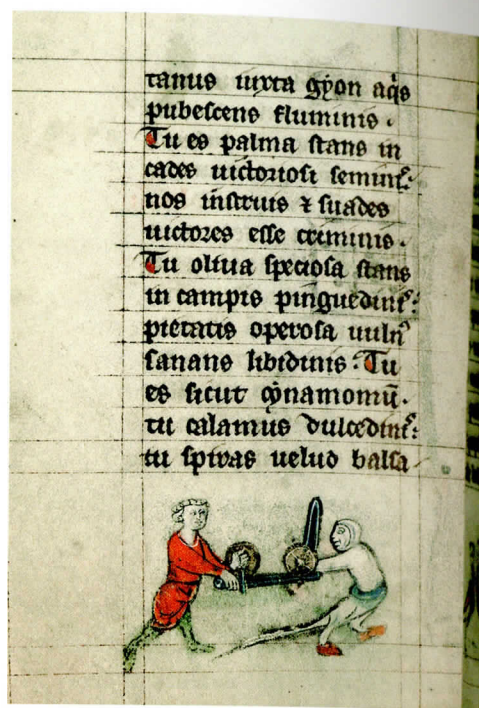 tanus iuxta gyon aq̄s
pubescens fluminis.
Tu es palma stans in
cades uictoriosi semini᷒:
nos instruis ⁊ suades
uictores esse criminis.
Tu oliua speciosa stans
in campis pinguedini᷒:
pietatis operosa uuln᷒
sanans libidinis: Tu
es sicut cẏnamomū.
tu calamus dulcedini᷒:
tu spiras uelud balsa